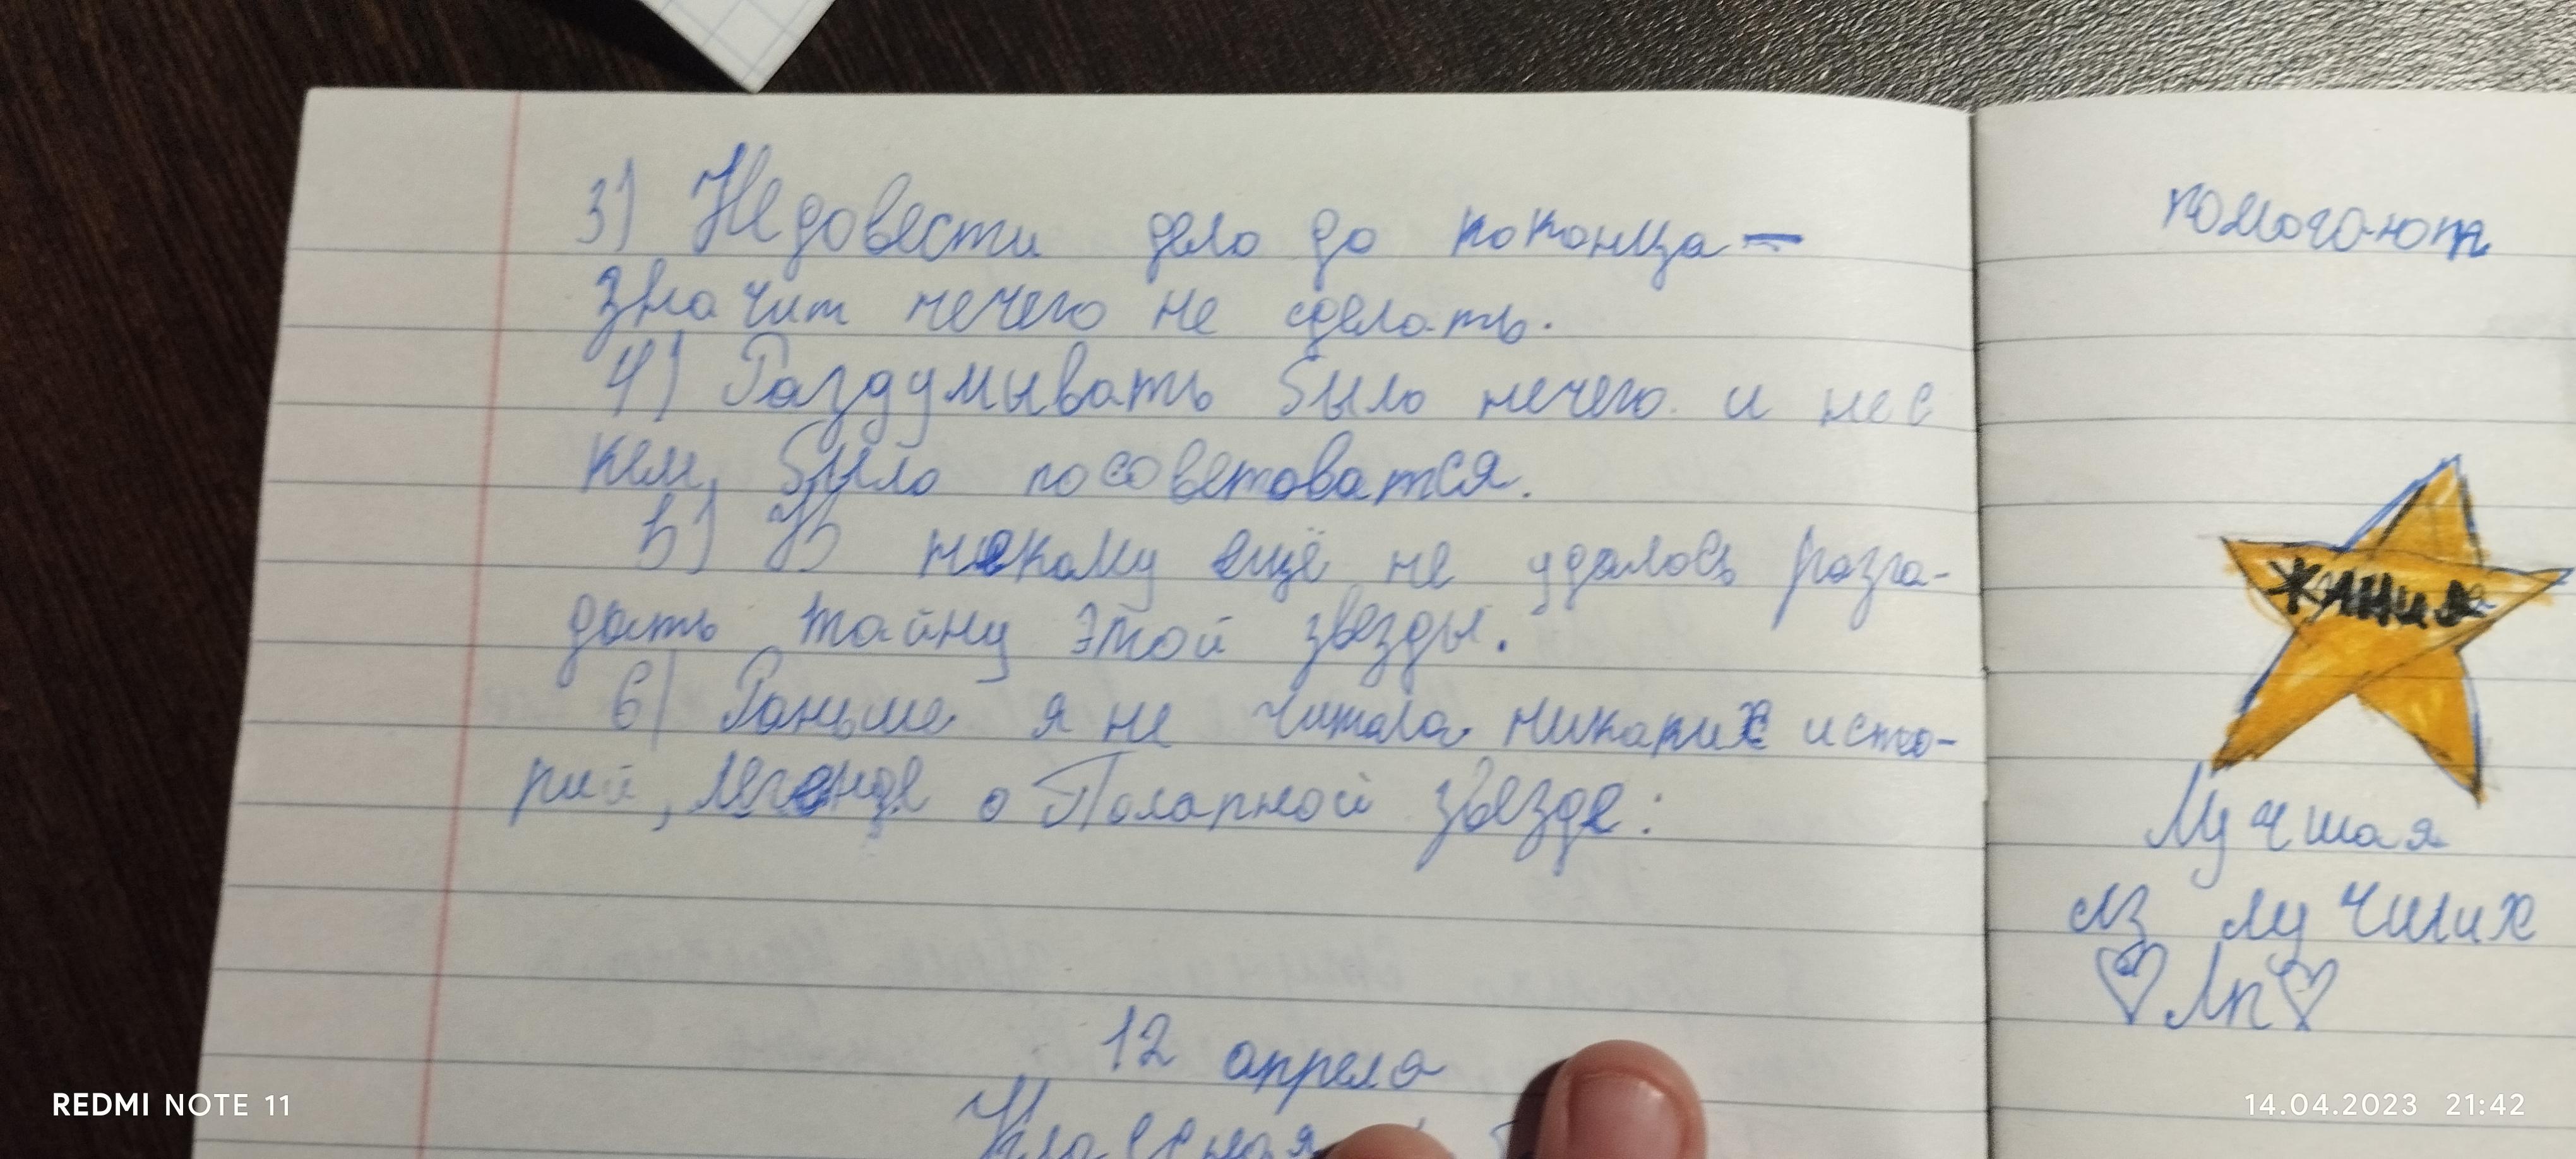 3) Недовести дело до коконца –
значит нечего не сделать.
4) Раздумывать было нечего и не с
кем, было посоветоватся.
5) Н некому ещё не удалось разга-
дать тайну этой звезды.
6) Раньше я не читала никаких исто-
рий, легенде о Полярной звезде.
12 апреля
Классная
помогают
Лучшая
из лучших
Лп
REDMI NOTE 11
14.04.2023 21:42